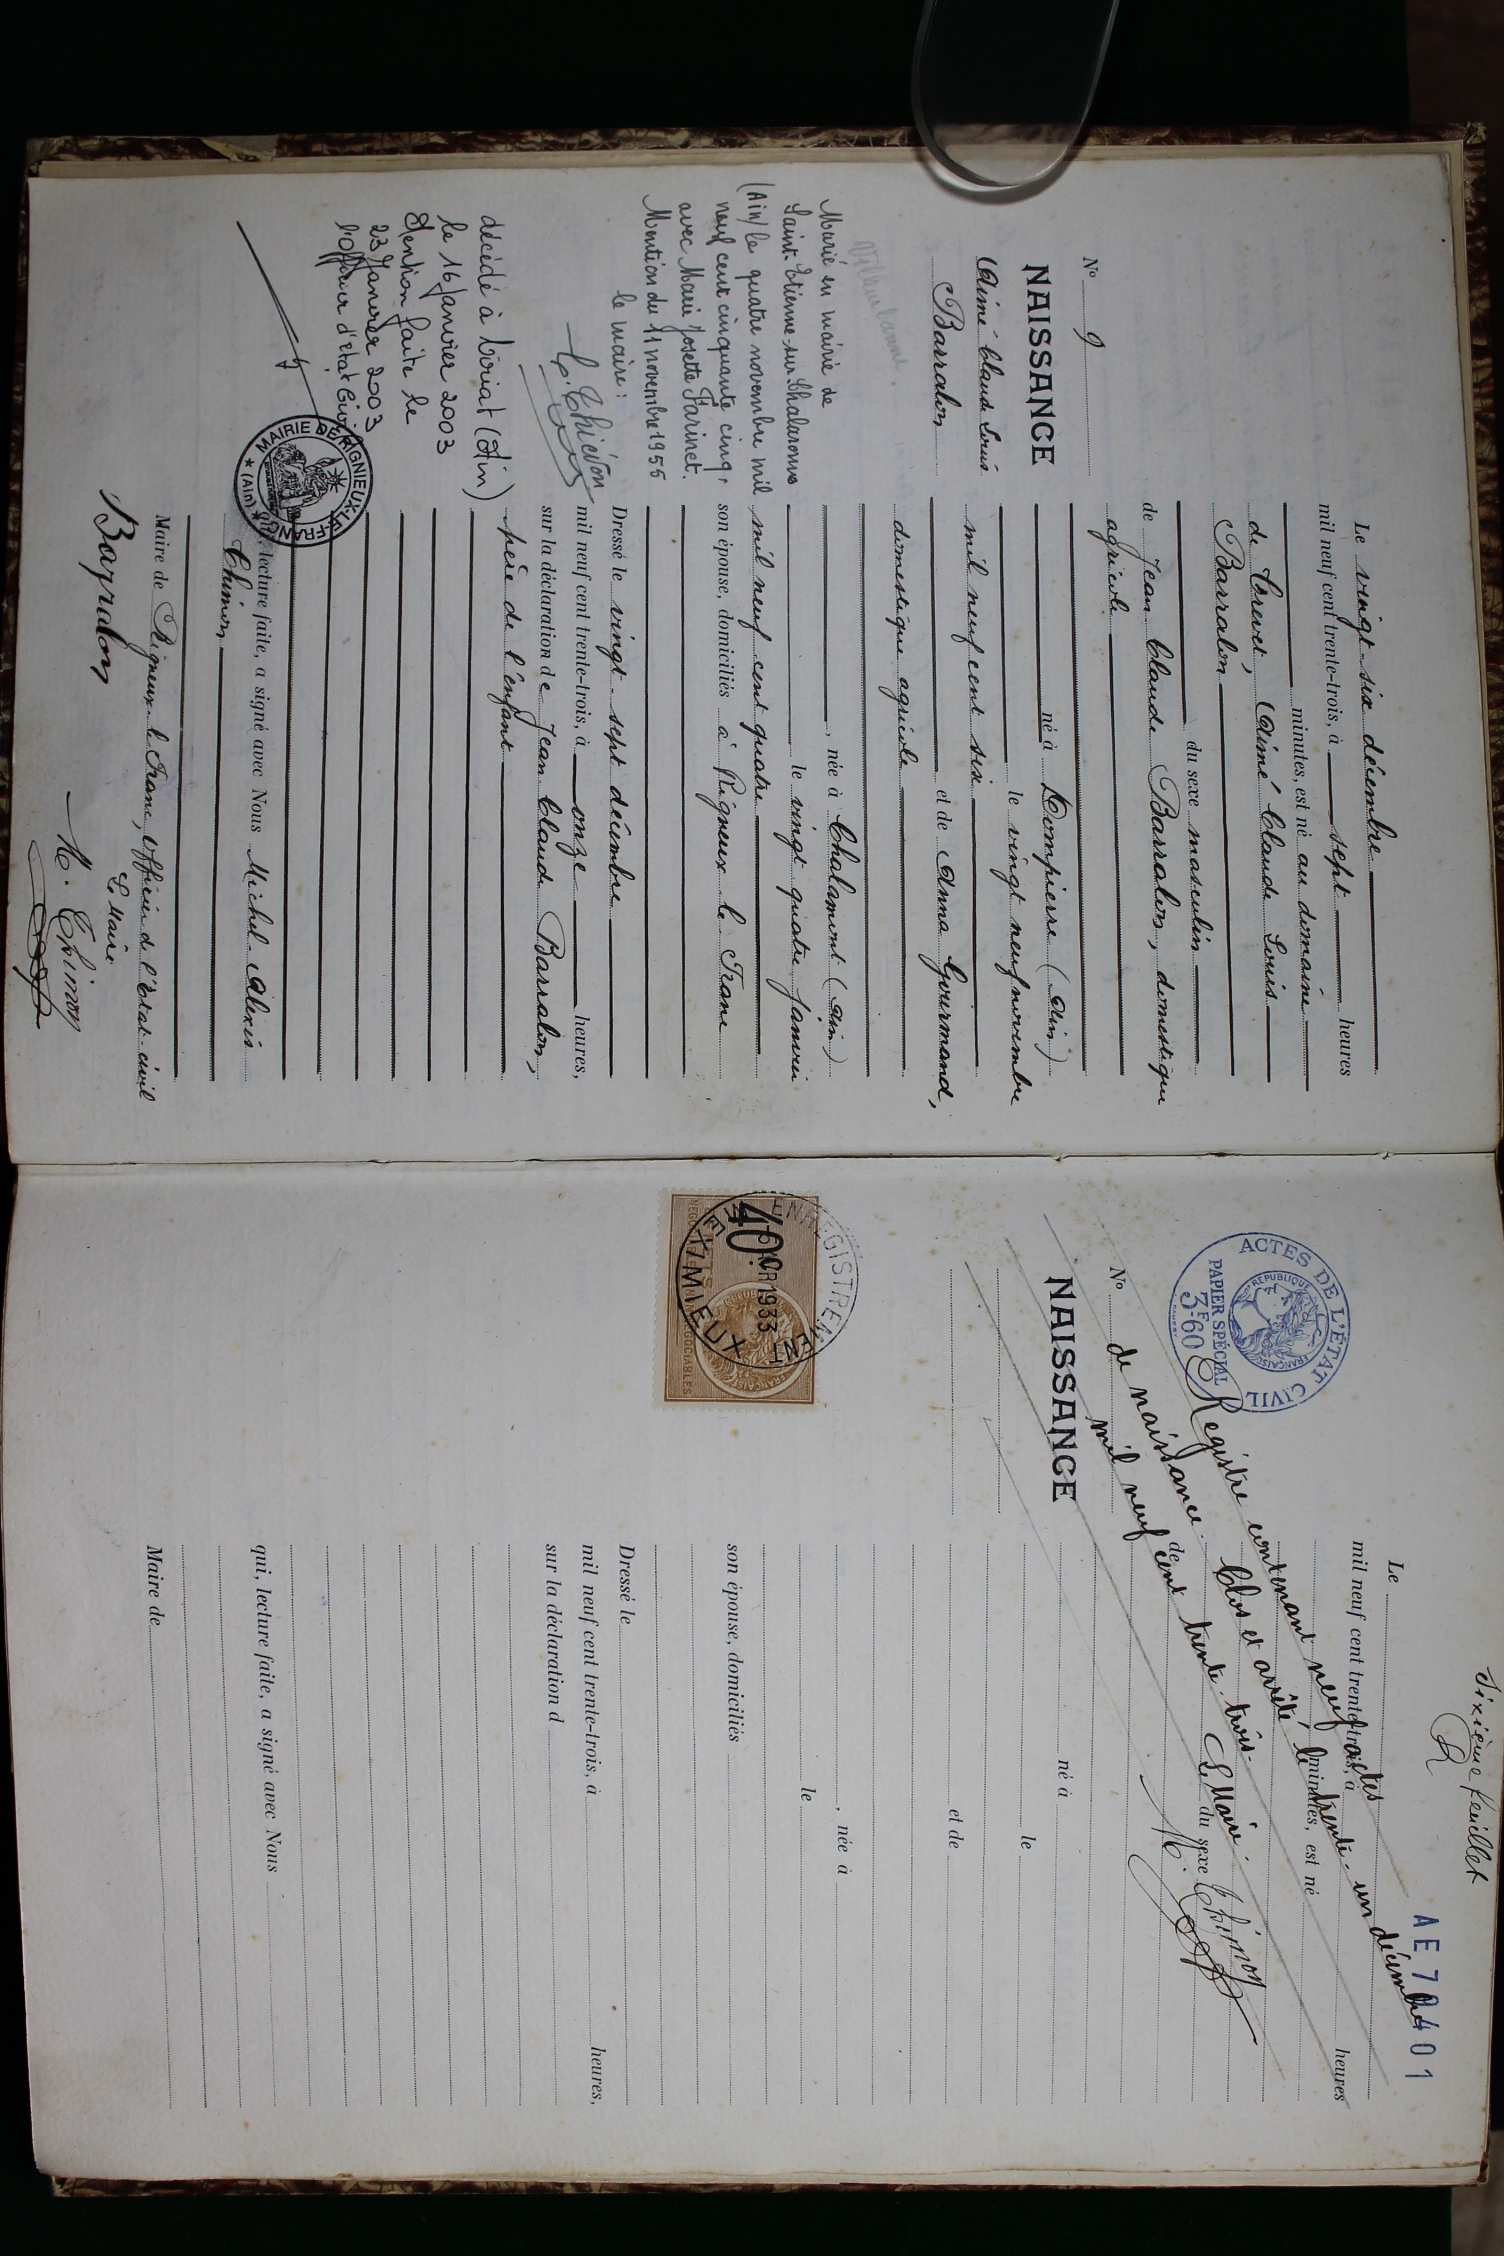 N° 9
NAISSANCE
Aimé Claude Louis
Barralon
Marié en mairie de
Saint-Etienne-sur-Chalaronne
(Ain) le quatre novembre mil
neuf cent cinquante cinq,
avec Marie Josette Farinet.
Mention du 11 novembre 1955
le maire :
décédé à Viriat (Ain)
le 16 Janvier 2003
Mention faite le
23 Janvier 2003
l'officier d'état Civil
MAIRIE DE RIGNIEUX-LE-FRANC
★ (Ain) ★
Le vingt-six décembre
mil neuf cent trente-trois, à sept heures
minutes, est né au domaine
de Crevet, Aimé Claude Louis
Barralon
du sexe masculin
de Jean Claude Barralon, domestique
agricole
né à Dompierre (Ain)
le vingt neuf novembre
mil neuf cent six
et de Anna Gourmand,
domestique agricole
, née à Chalamont (Ain)
le vingt quatre Janvier
mil neuf cent quatre
son épouse, domiciliés à Rigneux le Franc
Dressé le vingt-sept décembre
mil neuf cent trente-trois, à onze heures,
sur la déclaration de Jean Claude Barralon,
père de l'enfant
qui, lecture faite, a signé avec Nous Michel Alexis
Thimon
Maire de Rigneux-le-Franc, Officier de l'Etat-civil
Le Maire
Barralon
M. Thimon
Sixième feuillet
AE 70401
ACTES DE L'ÉTAT CIVIL
RÉPUBLIQUE FRANÇAISE
PAPIER SPÉCIAL
3F.60
Registre contenant neuf actes
de naissance. Clos et arrêté, le trente-un décembre
mil neuf cent trente-trois.
Le Maire.
M. Thimon
N°
NAISSANCE
ENREGISTREMENT
MEXIMIEUX
40c
1933
Le
mil neuf cent trente-trois, à heures
minutes, est né
du sexe
de
né à
le
et de
, née à
le
son épouse, domiciliés
Dressé le
mil neuf cent trente-trois, à heures,
sur la déclaration d
qui, lecture faite, a signé avec Nous
Maire de